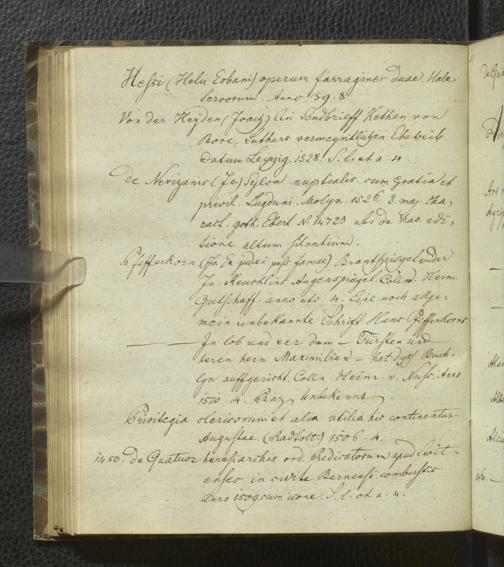 Hessi (Helii Eobani) operum farragines duae. Hale
servorum Anno 39. 8.
Von der Heyden (Joach) Ein Sendbrieff Kethen von
Bore, Luthers vermeyntlichen Eheweib
Datum Leipzig 1528. S. l. et a. 4.
de Nevizanis (Jo.) Sylva nuptialis. cum gratia et
privil. Lugduni. Molyn 1526. 8. maj. Cha,
ract. goth. Ebert N. 14723 ubi de hac edi,
tione altum silentium.
Pfefferkorn (Jo. Ex judei pess famae) Brantspiegel wider
Jo. Reuchlins Augenspiegel. Colln. Herm.
Gutschaff. anno etc. 4. Eine noch allge,
mein unbekannte Schrift Hans Pfefferkorns
— In lob und eer dem — Fürsten und
heren hern Maximilian — hat dyss Buch-
lyn auffgericht. Colln. Heinr. v. Nuss. Anno
1510. 4. Panz. unbekannt.
Privilegia clericorum et alia utilia hic continentur
Augustae. (Radtolt.) 1506. 4.
1450. de Quatuor heresiarchis ord. Predicatorum apud Swit-
enses in civitate Bernensi combustis
Anno 1509. cum icone. S. l. et a. 4.